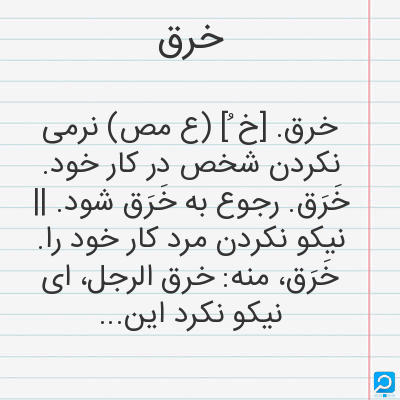 خرق
خرق. [خ ُ] (ع مص) نرمی
نکردن شخص در کار خود.
خَرَق. رجوع به خَرَق شود. ||
نیکو نکردن مرد کار خود را.
خَرَق، منه: خرق الرجل، ای
نیکو نکرد این...